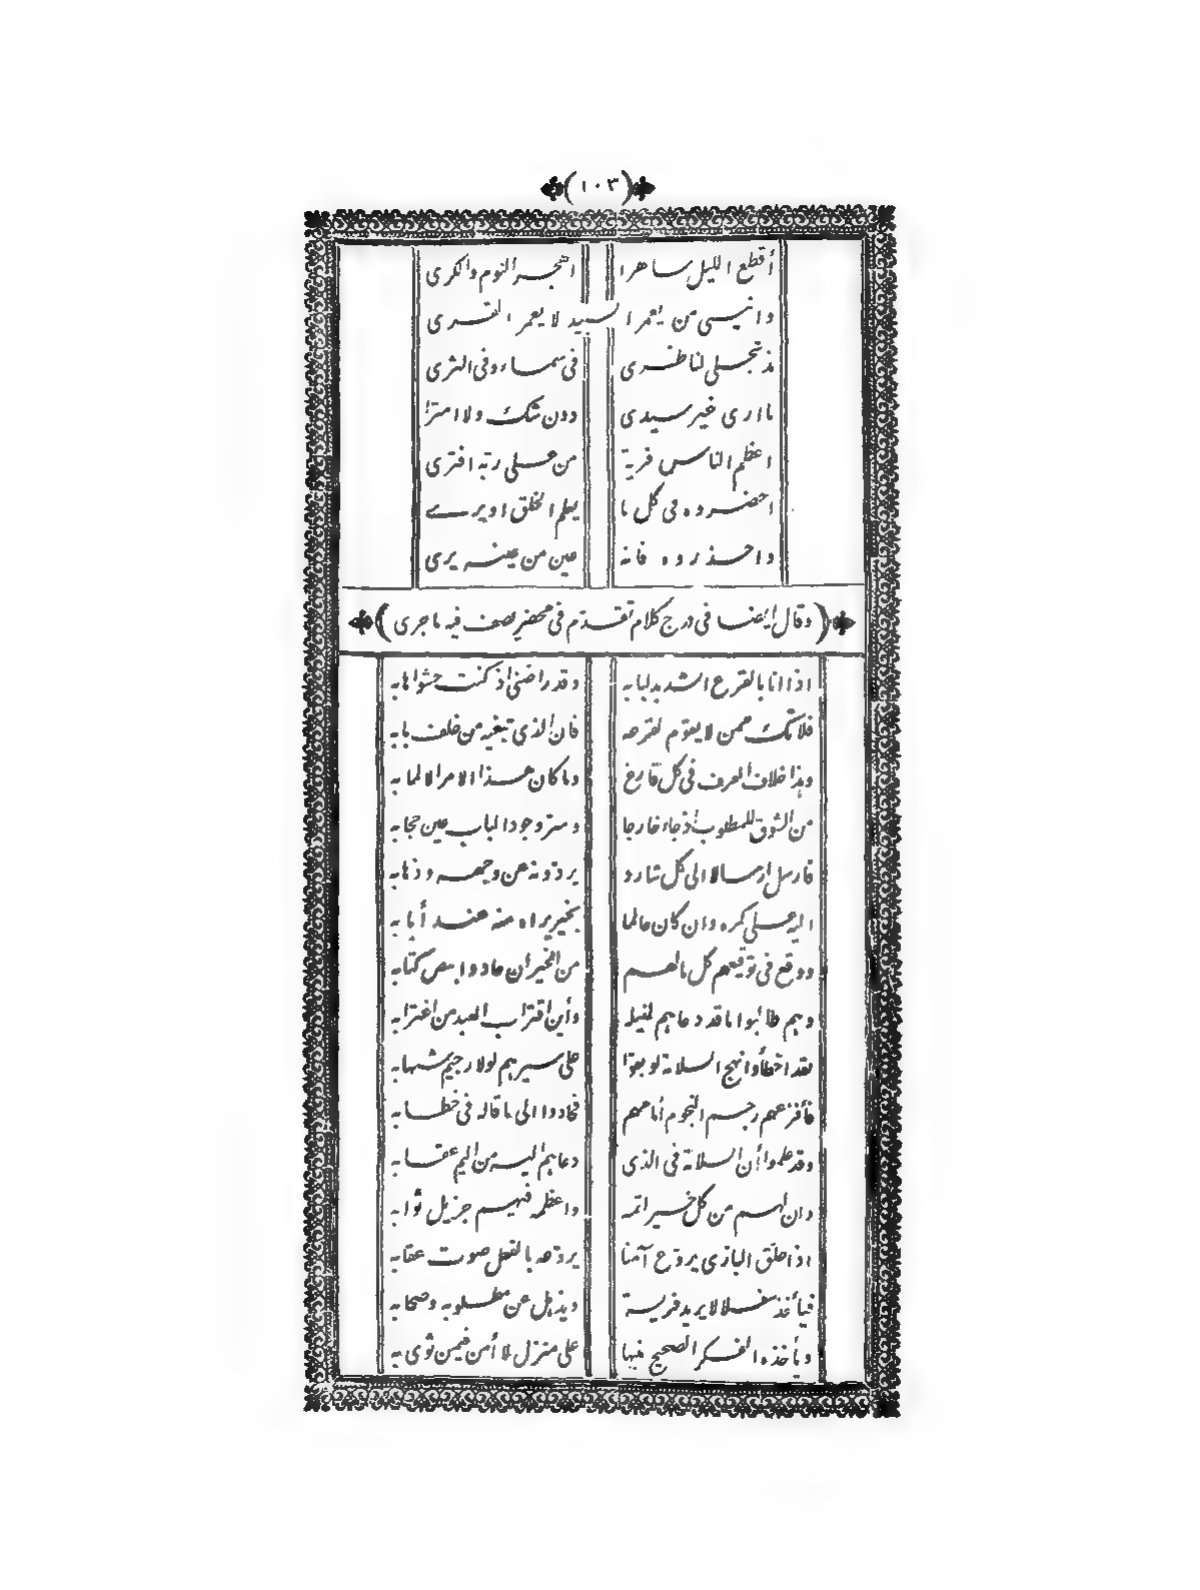 (١٠٣)
أقطع الليل ساهرا اهجر النوم والكرى
وانيسى من يعمر السيد لا يعمر القرى
مذ تجلى لناظرى فى سماء وفى الثرى
ما ارى غير سيدى دون شك ولا امترا
اعظم الناس فرية من على ربه افترى
احضروه فى كل ما يعلم الخلق او يرى
واحذروه فانه عين من عينه يرى
(وقال ايضا فى درج كلام تقدّم فى محضر يصف فيه ما جرى)
اذا انا بالقرع الشديد لبابه وقد راضنى اذ كنت حشو اهابه
فلا تك ممن لا يقوم لقرعه فان الذى تبغيه من خلف بابه
وهذا خلاف العرف فى كل قارع وما كان هذا الامر الا لما به
من الشوق للمطلوب اذ جاء خارجا وستر وجود الباب عين حجابه
فارسل ارسالا الى كل شارد يردّونه عن وجهه وذهابه
اليه على كره وان كان عالما بخير يراه منه عند أيابه
ووقع فى توقيعهم كل مالهم من الخير ان عادوا بنص كتابه
وهم طالبوا ما قد دعاهم لنيله وأين اقتراب العبد من اغترابه
لقد اخطأوا نهج السلامة لو بقوا على سيرهم لولا رجيم شهابه
فأفزعهم رجم النجوم أمامهم فعادوا الى ما قاله فى خطابه
وقد علموا أن السلامة فى الذى دعاهم اليه من اليم عقابه
وان لهم من كل خير اتمه واعظمه فيهم جزيل ثوابه
اذا حلق البازى يروّع آمنا يردّعه بالفعل صوت عقابه
فيأخذ سفلا لا يريد فريسة ويذهل عن مطلوبه وصحابه
ويأخذه الفكر الصحيح منبها على منزل لا أمن فيمن ثوى به